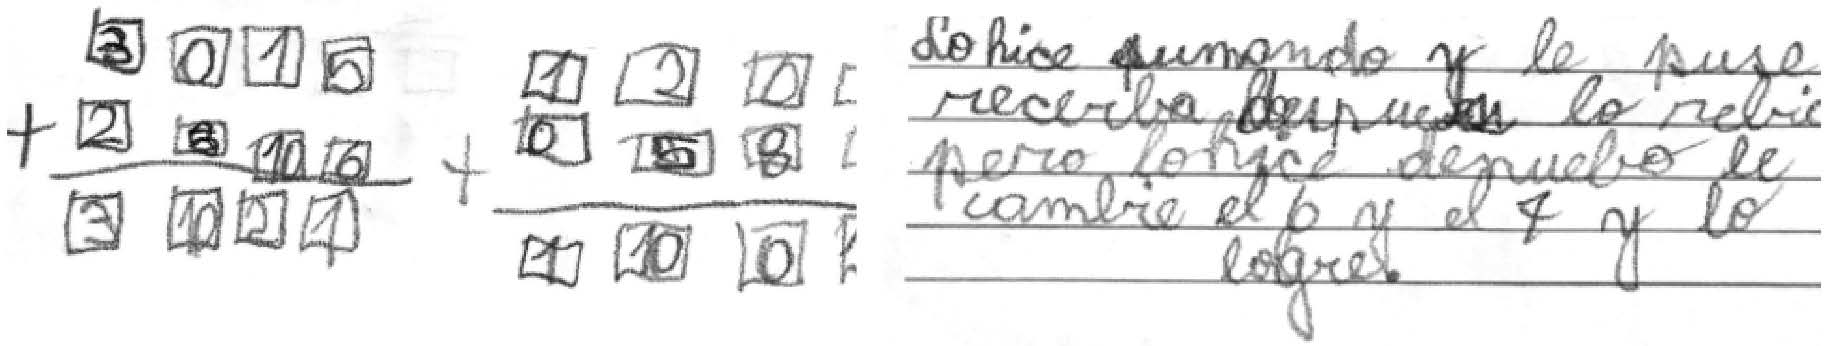 3 0 1 5
+ 2 8 10 6
3 10 2 1
1 2 0
+ 0 5 8
1 10 0
Lo hice sumando y le puse
recerba despues lo rebic
pero lohice denuebo le
cambie el 6 y el 4 y lo
logre.